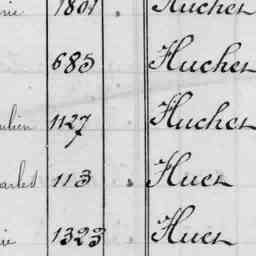 rie 1801 Huchet
685 Huchet
ulien 1127 Huchet
harles 113 Huet
rie 1323 Huet